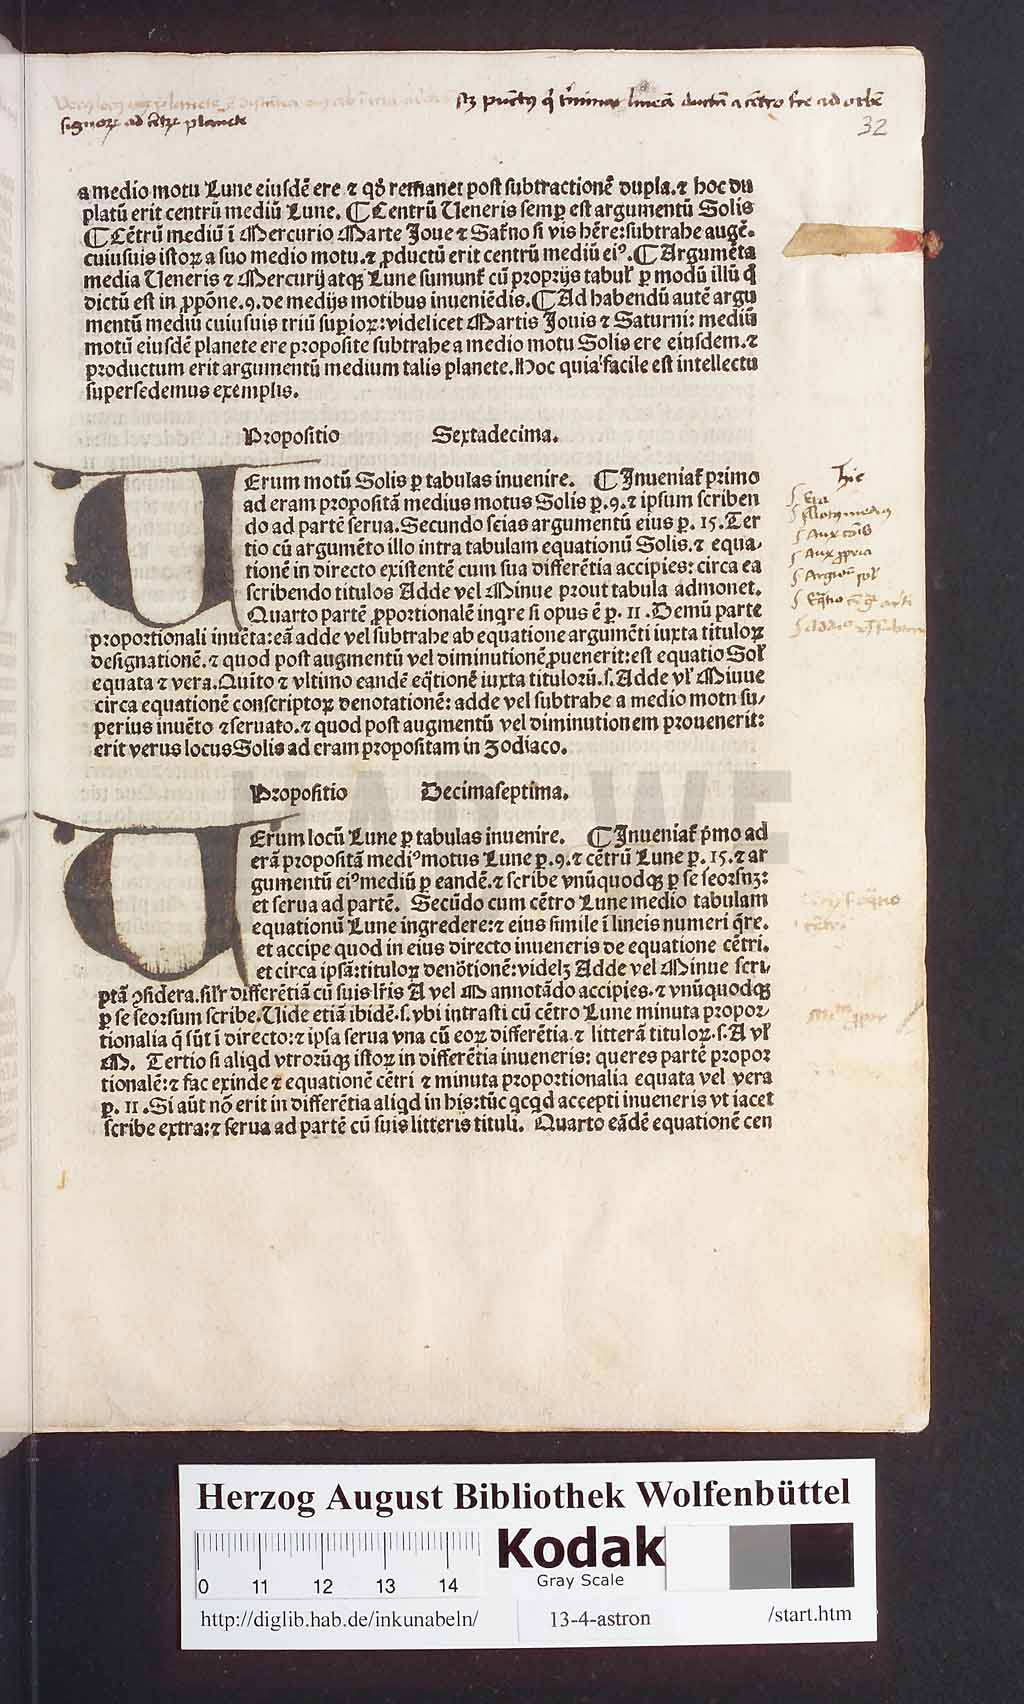 32
a medio motu Lune eiusdē ere ⁊ qđ remanet post subtractionē dupla.⁊ hoc du
platū erit centrū mediū Lune. ¶ Centrū Ueneris semp est argumentū Solis
¶ Cētrū mediū ī Mercurio Marte Joue ⁊ Saťno si vis hēre:subtrahe augē.
cuiusuis istoꝝ a suo medio motu.⁊ ꝓductū erit centrū mediū eiꝰ. ¶ Argumēta
media Ueneris ⁊ Mercurij atqꝫ Lune sumunť cū proprijs tabuľ ꝑ modū illū q̄
dictū est in ꝓpōne.9.de medijs motibus inueniēdis. ¶ Ad habendū autē argu
mentū mediū cuiusuis triū supioꝝ:videlicet Martis Jouis ⁊ Saturni: mediū
motū eiusdē planete ere proposite subtrahe a medio motu Solis ere eiusdem.⁊
productum erit argumentū medium talis planete.Hoc quia facile est intellectu
supersedemus exemplis.
Propositio Sextadecima.
UErum motū Solis ꝑ tabulas inuenire. ¶ Inueniať primo
ad eram propositā medius motus Solis ꝑ.9.⁊ ipsum scriben
do ad partē serua.Secundo scias argumentū eius ꝑ.15.Ter
tio cū argumēto illo intra tabulam equationū Solis.⁊ equa-
tionē in directo existentē cum sua differētia accipies: circa ea
scribendo titulos Adde vel Minue prout tabula admonet.
Quarto partē ꝓportionalē inqre si opus ē ꝑ.11.Demū parte
proportionali inuēta:eā adde vel subtrahe ab equatione argumēti iuxta tituloꝝ
designationē.⁊ quod post augmentū vel diminutionē ꝓuenerit:est equatio Soľ
equata ⁊ vera.Quīto ⁊ vltimo eandē eq̄tionē iuxta titulorū.s.Adde vľ Minue
circa equationē conscriptoꝝ denotationē: adde vel subtrahe a medio motn su-
perius inuēto ⁊ seruato.⁊ quod post augmentū vel diminutionem prouenerit:
erit verus locus Solis ad eram propositam in zodiaco.
Propositio Decimaseptima.
UErum locū Lune ꝑ tabulas inuenire. ¶ Inueniať p̄mo ad
erā propositā mediꝰ motus Lune ꝑ.9.⁊ cētrū Lune ꝑ.15.⁊ ar
gumentū eiꝰ mediū ꝑ eandē.⁊ scribe vnūquodqꝫ ꝑ se seorsuꝫ:
et serua ad partē. Secūdo cum cētro Lune medio tabulam
equationū Lune ingredere:⁊ eius simile ī lineis numeri q̄re.
et accipe quod in eius directo inueneris de equatione cētri.
et circa ipsā:tituloꝝ denōtionē:videlꝫ Adde vel Minue scri-
ptā ꝯsidera.siľr differētiā cū suis lr̄is A vel M annotādo accipies.⁊ vnūquodqꝫ
ꝑ se seorsum scribe.Uide etiā ibidē.s.vbi intrasti cū cētro Lune minuta propor-
tionalia q̄ sūt ī directo:⁊ ipsa serua vna cū eoꝝ differētia.⁊ litterā tituloꝝ.s.A vľ
M. Tertio si aliqd vtrorūqꝫ istoꝝ in differētia inueneris: queres partē propor
tionalē:⁊ fac exinde ⁊ equationē cētri ⁊ minuta proportionalia equata vel vera
ꝑ.11.Si aūt nō erit in differētia aliqd in his:tūc qcqd accepti inueneris vt iacet
scribe extra:⁊ serua ad partē cū suis litteris tituli. Quarto eādē equationē cen
HAB WF
Herzog August Bibliothek Wolfenbüttel
0 11 12 13 14
Kodak
Gray Scale
http://diglib.hab.de/inkunabeln/ 13-4-astron /start.htm